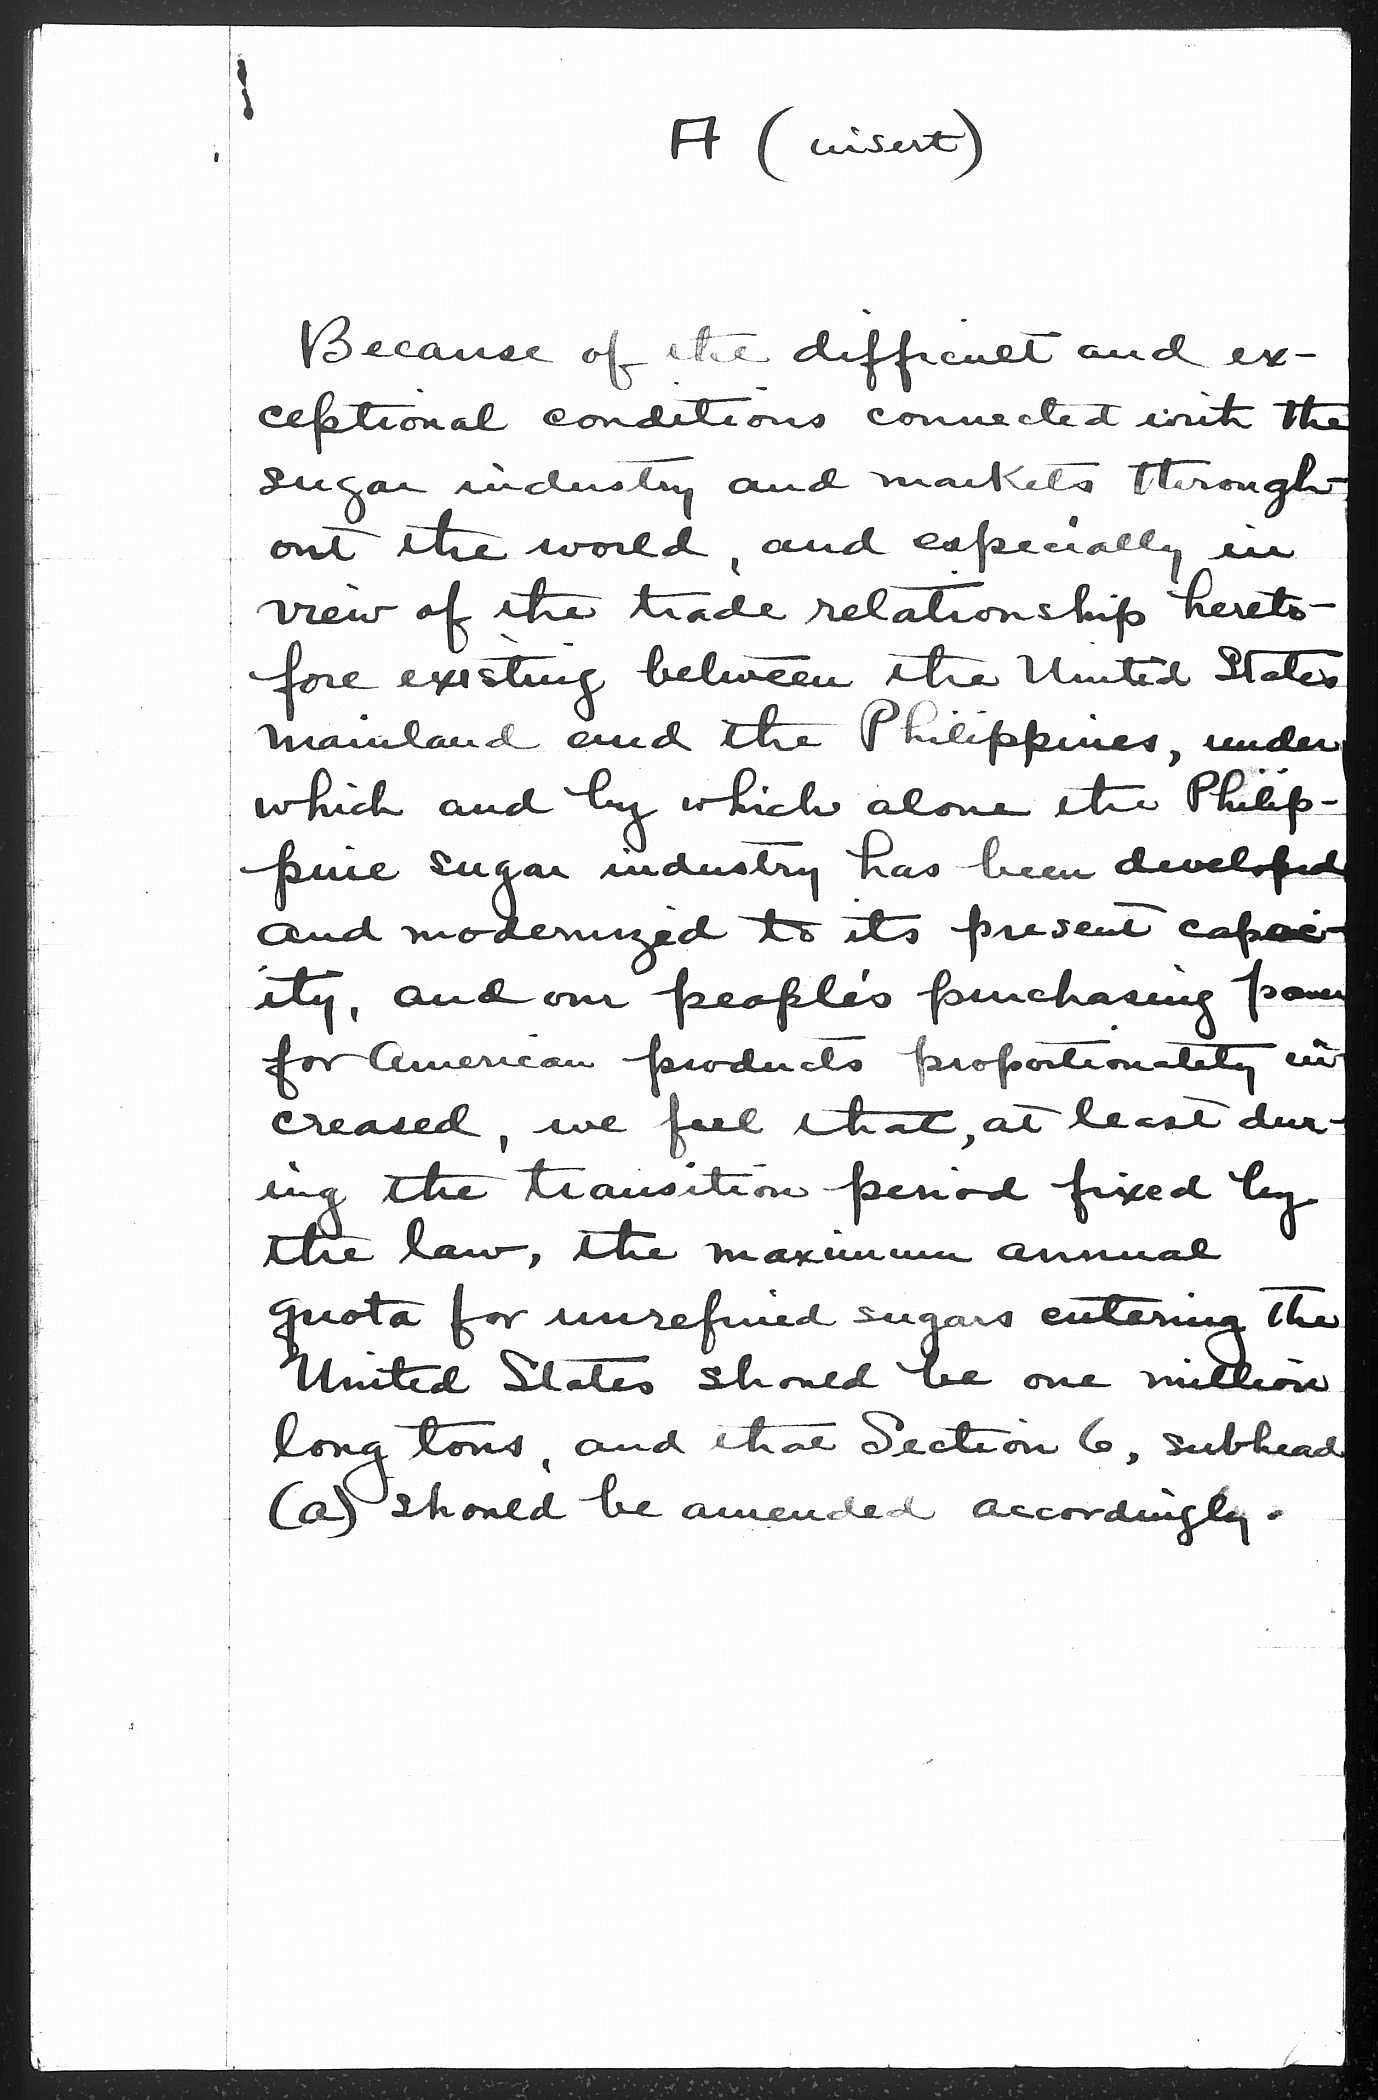 A (insert)
Because of the difficult and ex-
ceptional conditions connected with the
sugar industry and markets through-
out the world, and especially in
view of the trade relationship hereto-
fore existing between the United States
mainland and the Philippines, under
which and by which alone the Philip-
pine sugar industry has been developed
and modernized to its present capac-
ity, and our people's purchasing power
for American products proportionately in-
creased, we feel that, at least dur-
ing the transition period fixed by
the law, the maximum annual
quota for unrefined sugars entering the
United States should be one million
long tons, and that Section 6, subhead
(a) should be amended accordingly.